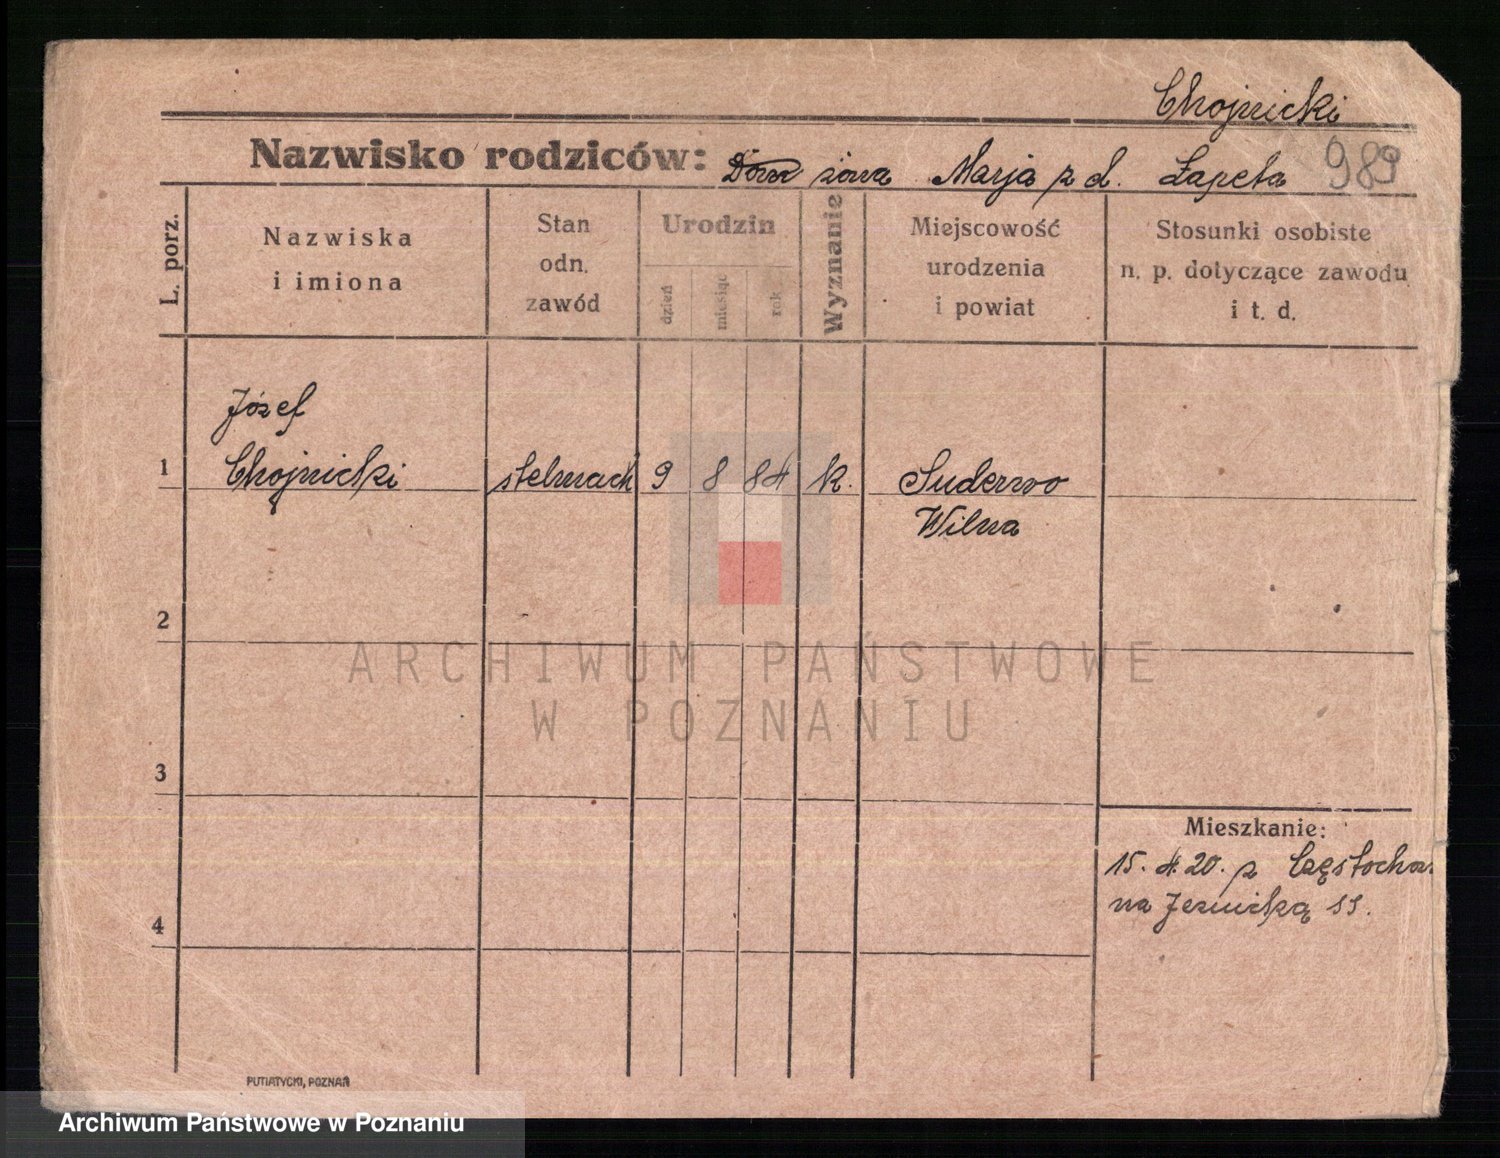 Chojnicki
Nazwisko rodziców: żona Marja z d. Łapeta 989
L. porz.
Nazwiska
i imiona
Stan
odn.
zawód
Urodzin
dzień
miesiąc
rok
Wyznanie
Miejscowość
urodzenia
i powiat
Stosunki osobiste
n. p. dotyczące zawodu
i t. d.
Józef
1 Chojnicki stelmach 9 8 84 k. Suderwo
Wilna
2
ARCHIWUM PAŃSTWOWE
W POZNANIU
3
Mieszkanie:
15. 4. 20. z Częstochow.
na 11.
4
PUTIATYCKI, POZNAŃ
Archiwum Państwowe w Poznaniu